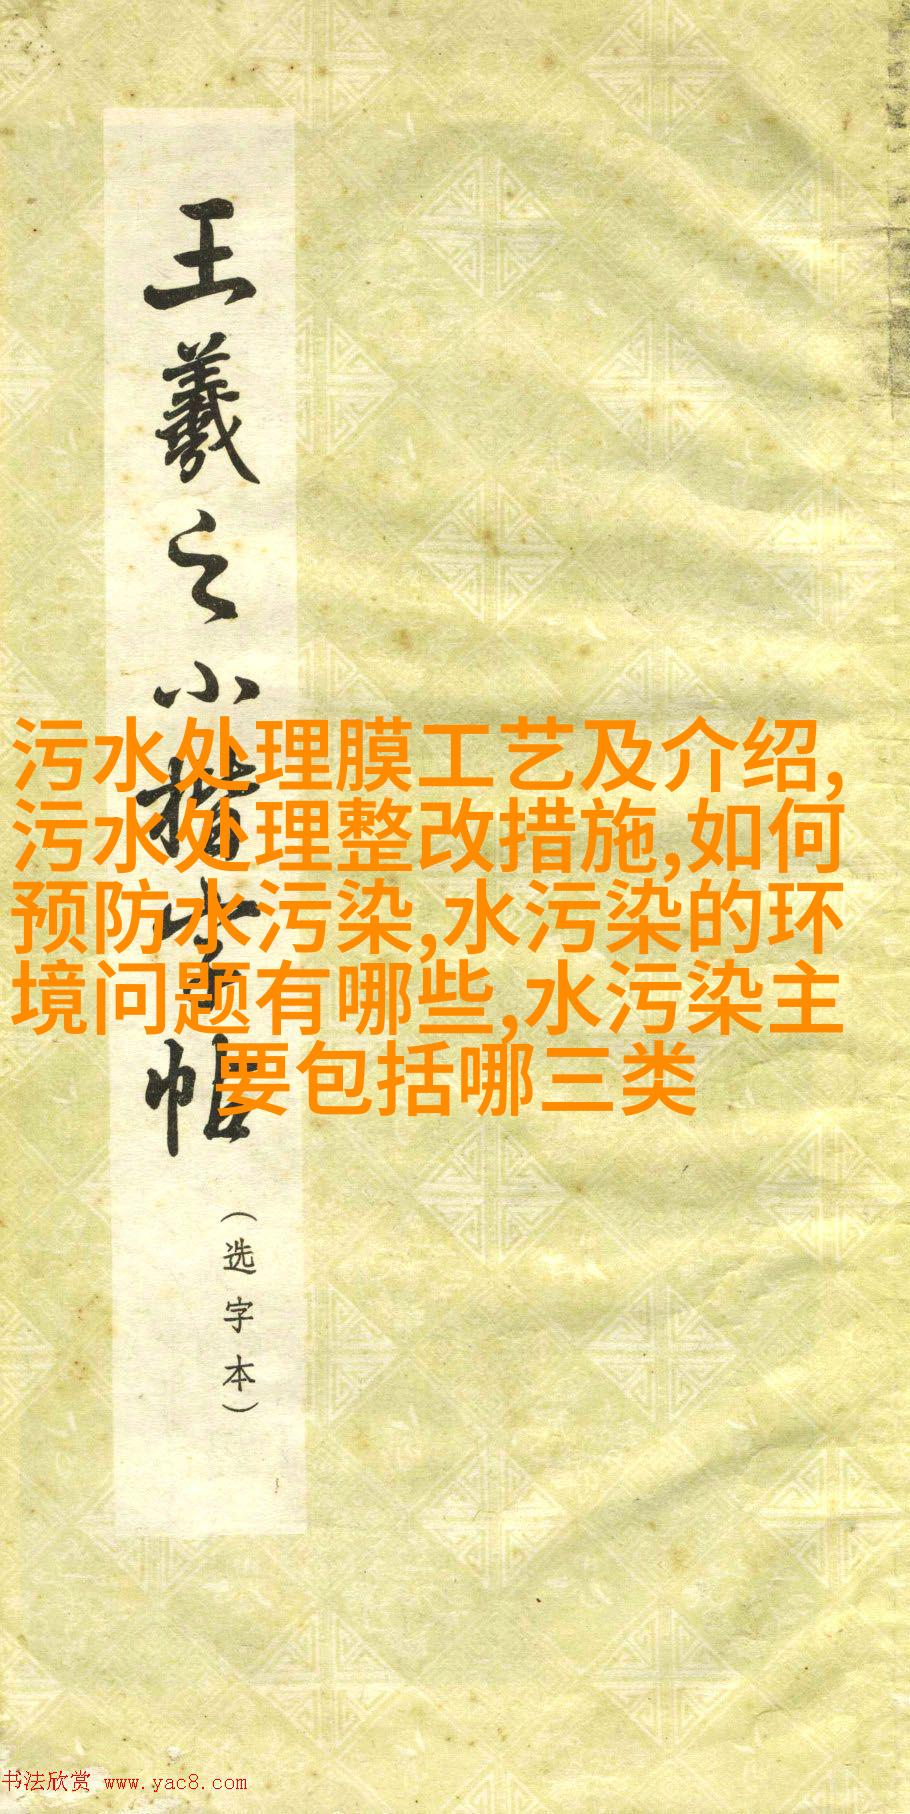 王羲之小楷字帖
（选字本）
污水处理膜工艺及介绍,
污水处理整改措施,如何
预防水污染,水污染的环
境问题有哪些,水污染主
要包括哪三类
书法欣赏 www.yac8.com